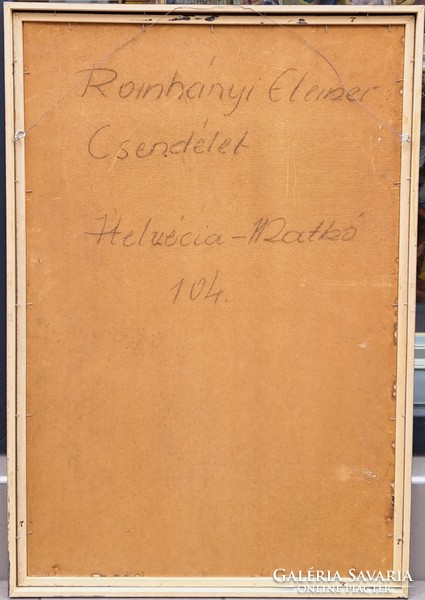 Romhányi Elemer
Csendélet
Helvécia-Matkó
104.
GALÉRIA SAVARIA
ONLINE PIACTÉR